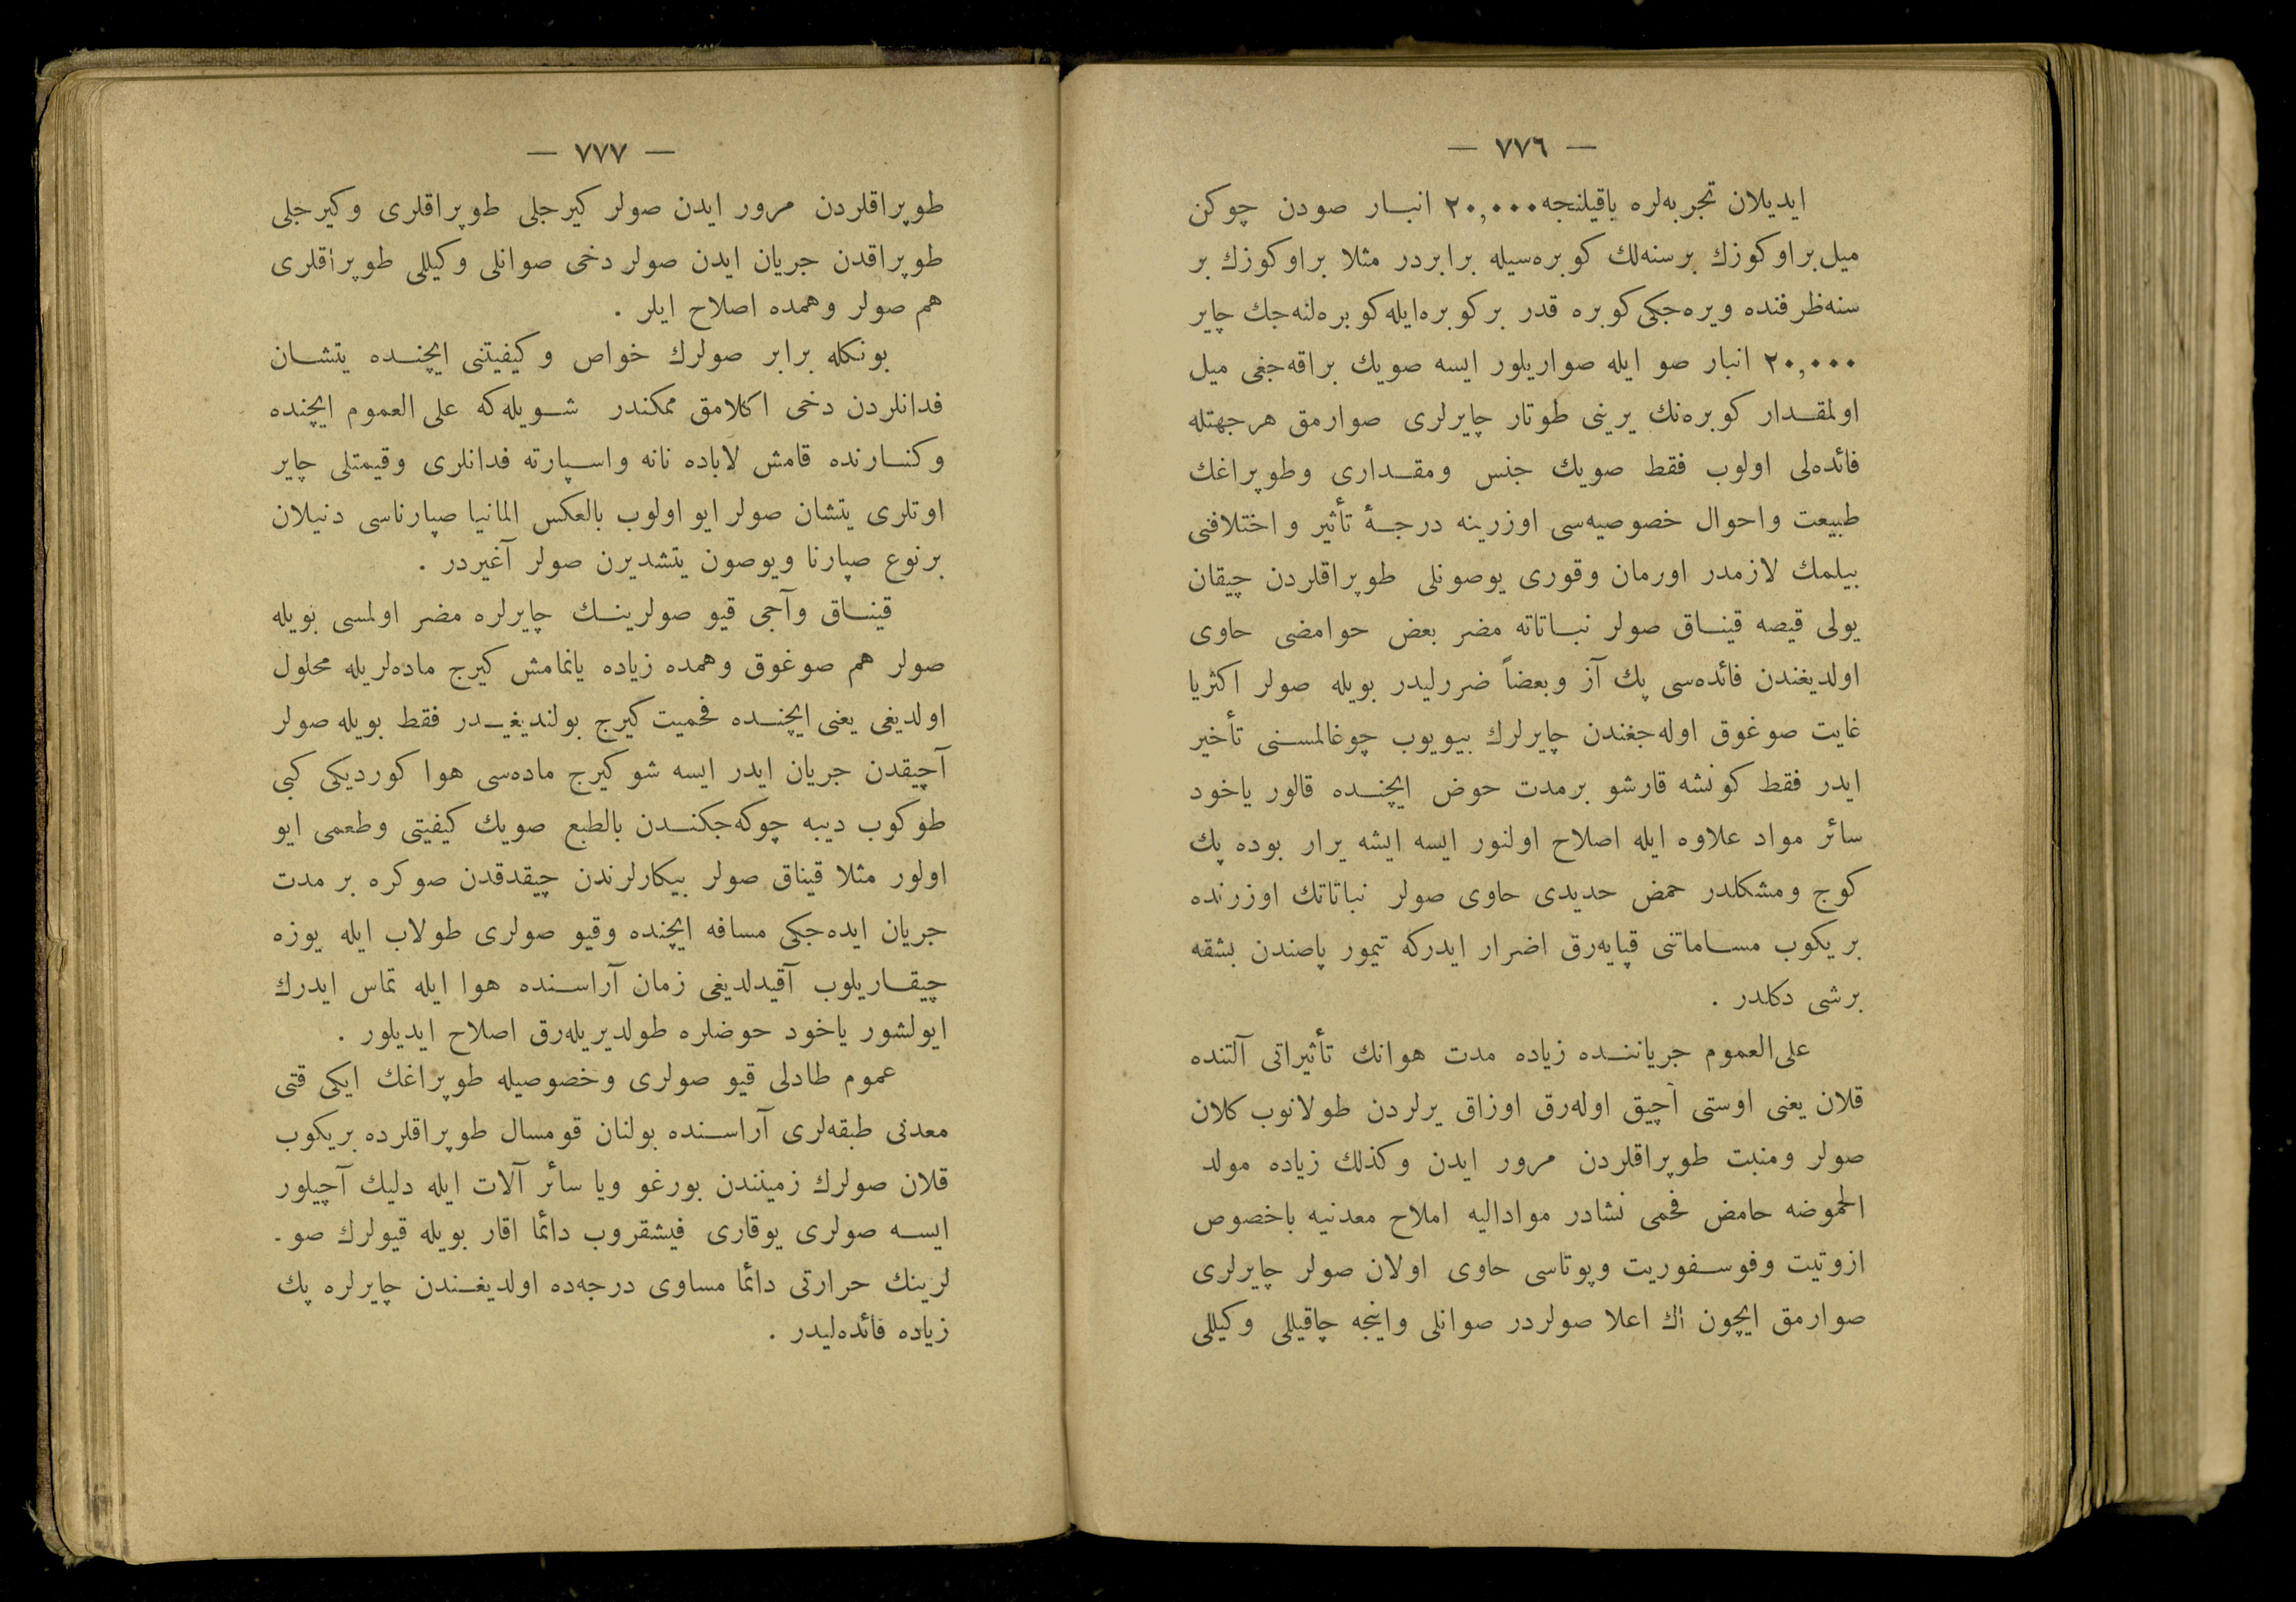 — ٧٧٦ —
ایدیلان تجربه‌لره باقیلنجه ٢٠,٠٠٠ انبار صودن چوکن
میل بر اوکوزك بر سنه‌لك کوبره‌سیله برابردر مثلا بر اوکوزك بر
سنه ظرفنده ویره‌جکی کوبره قدر بر کوبره ایله کوبره‌لنه‌جك چایر
٢٠,٠٠٠ انبار صو ایله صواریلور ایسه صویك براقه‌جغی میل
اولمقدار کوبره‌نك یرینی طوتار چایرلری صوارمق هر جهتله
فائده‌لی اولوب فقط صویك جنس ومقداری وطوپراغك
طبیعت واحوال خصوصیه‌سی اوزرینه درجهٔ تأثیر و اختلافنی
بیلمك لازمدر اورمان وقوری یوصونلی طوپراقلردن چیقان
یولی قیصه قیناق صولر نباتاته مضر بعض حوامضی حاوی
اولدیغندن فائده‌سی پك آز وبعضاً ضررلیدر بویله صولر اکثریا
غایت صوغوق اوله‌جغندن چایرلرك بیویوب چوغالمسنی تأخیر
ایدر فقط کونشه قارشو بر مدت حوض ایچنده قالور یاخود
سائر مواد علاوه ایله اصلاح اولنور ایسه ایشه یرار بوده پك
کوج ومشکلدر حمض حدیدی حاوی صولر نباتاتك اوزرنده
بریکوب مساماتنی قپایه‌رق اضرار ایدرکه تیمور پاصندن بشقه
برشی دکلدر .
علی‌العموم جریاننده زیاده مدت هوانك تأثیراتی آلتنده
قلان یعنی اوستی آچیق اوله‌رق اوزاق یرلردن طولانوب کلان
صولر ومنبت طوپراقلردن مرور ایدن وکذلك زیاده مولد
الحموضه حامض فحمی نشادر موادالیه املاح معدنیه باخصوص
ازوتیت وفوسفوریت وپوتاسی حاوی اولان صولر چایرلری
صوارمق ایچون اك اعلا صولردر صوانلی واینجه چاقیللی وکیللی
— ٧٧٧ —
طوپراقلردن مرور ایدن صولر کیرجلی طوپراقلری وکیرجلی
طوپراقدن جریان ایدن صولر دخی صوانلی وکیللی طوپراقلری
هم صولر وهمده اصلاح ایلر .
بونکله برابر صولرك خواص وکیفیتنی ایچنده یتشان
فدانلردن دخی اکلامق ممکندر شویله‌که علی العموم ایچنده
وکنارنده قامش لاباده نانه واسپارته فدانلری وقیمتلی چایر
اوتلری یتشان صولر ایو اولوب بالعکس المانیا صپارناسی دنیلان
برنوع صپارنا ویوصون یتشدیرن صولر آغیردر .
قیناق وآجی قیو صولرینك چایرلره مضر اولمسی بویله
صولر هم صوغوق وهمده زیاده یانمامش کیرج ماده‌لریله محلول
اولدیغی یعنی ایچنده فحمیت کیرج بولندیغیدر فقط بویله صولر
آچیقدن جریان ایدر ایسه شو کیرج ماده‌سی هوا کوردیکی کبی
طوکوب دیبه چوکه‌جکندن بالطبع صویك کیفیتی وطعمی ایو
اولور مثلا قیناق صولر بیکارلرندن چیقدقدن صوکره بر مدت
جریان ایده‌جکی مسافه ایچنده وقیو صولری طولاب ایله یوزه
چیقاریلوب آقیدلدیغی زمان آراسنده هوا ایله تماس ایدرك
ایولشور یاخود حوضلره طولدیریله‌رق اصلاح ایدیلور .
عموم طادلی قیو صولری وخصوصیله طوپراغك ایکی قتی
معدنی طبقه‌لری آراسنده بولنان قومسال طوپراقلرده بریکوب
قلان صولرك زمیننندن بورغو ویا سائر آلات ایله دلیك آچیلور
ایسه صولری یوقاری فیشقروب دائما اقار بویله قیولرك صو-
لرینك حرارتی دائما مساوی درجه‌ده اولدیغندن چایرلره پك
زیاده فائده‌لیدر .